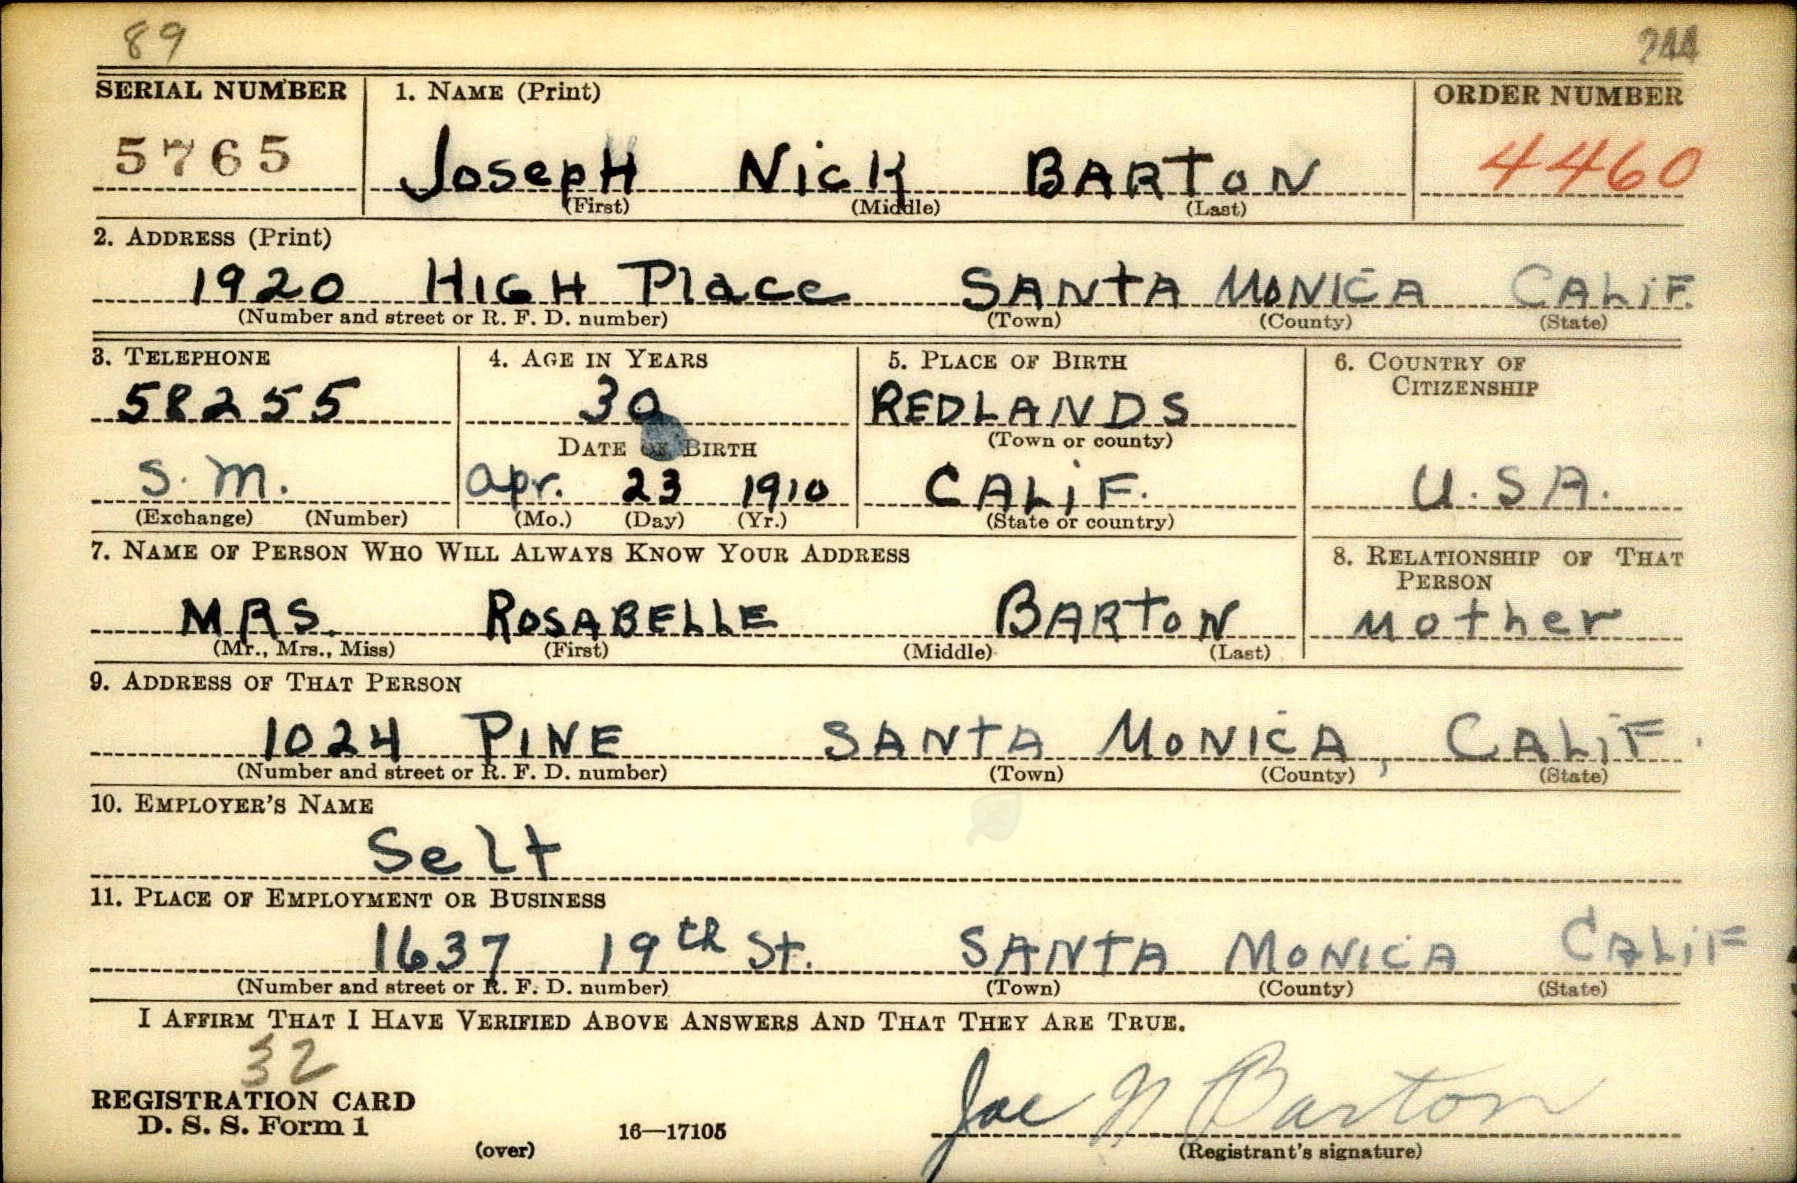 89 244
SERIAL NUMBER 1. NAME (Print) ORDER NUMBER
5765 JosepH Nick BARTON 4460
(First) (Middle) (Last)
2. ADDRESS (Print)
1920 HIGH Place SANTA MONICA CALIF.
(Number and street or R. F. D. number) (Town) (County) (State)
3. TELEPHONE 4. AGE IN YEARS 5. PLACE OF BIRTH 6. COUNTRY OF CITIZENSHIP
58255 30 REDLANDS
DATE OF BIRTH (Town or county)
S. M. Apr. 23 1910 CALIF. U.S.A.
(Exchange) (Number) (Mo.) (Day) (Yr.) (State or country)
7. NAME OF PERSON WHO WILL ALWAYS KNOW YOUR ADDRESS 8. RELATIONSHIP OF THAT PERSON
MRS. ROSABELLE BARTON Mother
(Mr., Mrs., Miss) (First) (Middle) (Last)
9. ADDRESS OF THAT PERSON
1024 PINE SANTA MONICA, CALIF.
(Number and street or R. F. D. number) (Town) (County) (State)
10. EMPLOYER'S NAME
Self
11. PLACE OF EMPLOYMENT OR BUSINESS
1637 19th St. SANTA MONICA CALIF
(Number and street or R. F. D. number) (Town) (County) (State)
I AFFIRM THAT I HAVE VERIFIED ABOVE ANSWERS AND THAT THEY ARE TRUE.
32
REGISTRATION CARD
D. S. S. Form 1 16—17105 Joe N Barton
(over) (Registrant's signature)